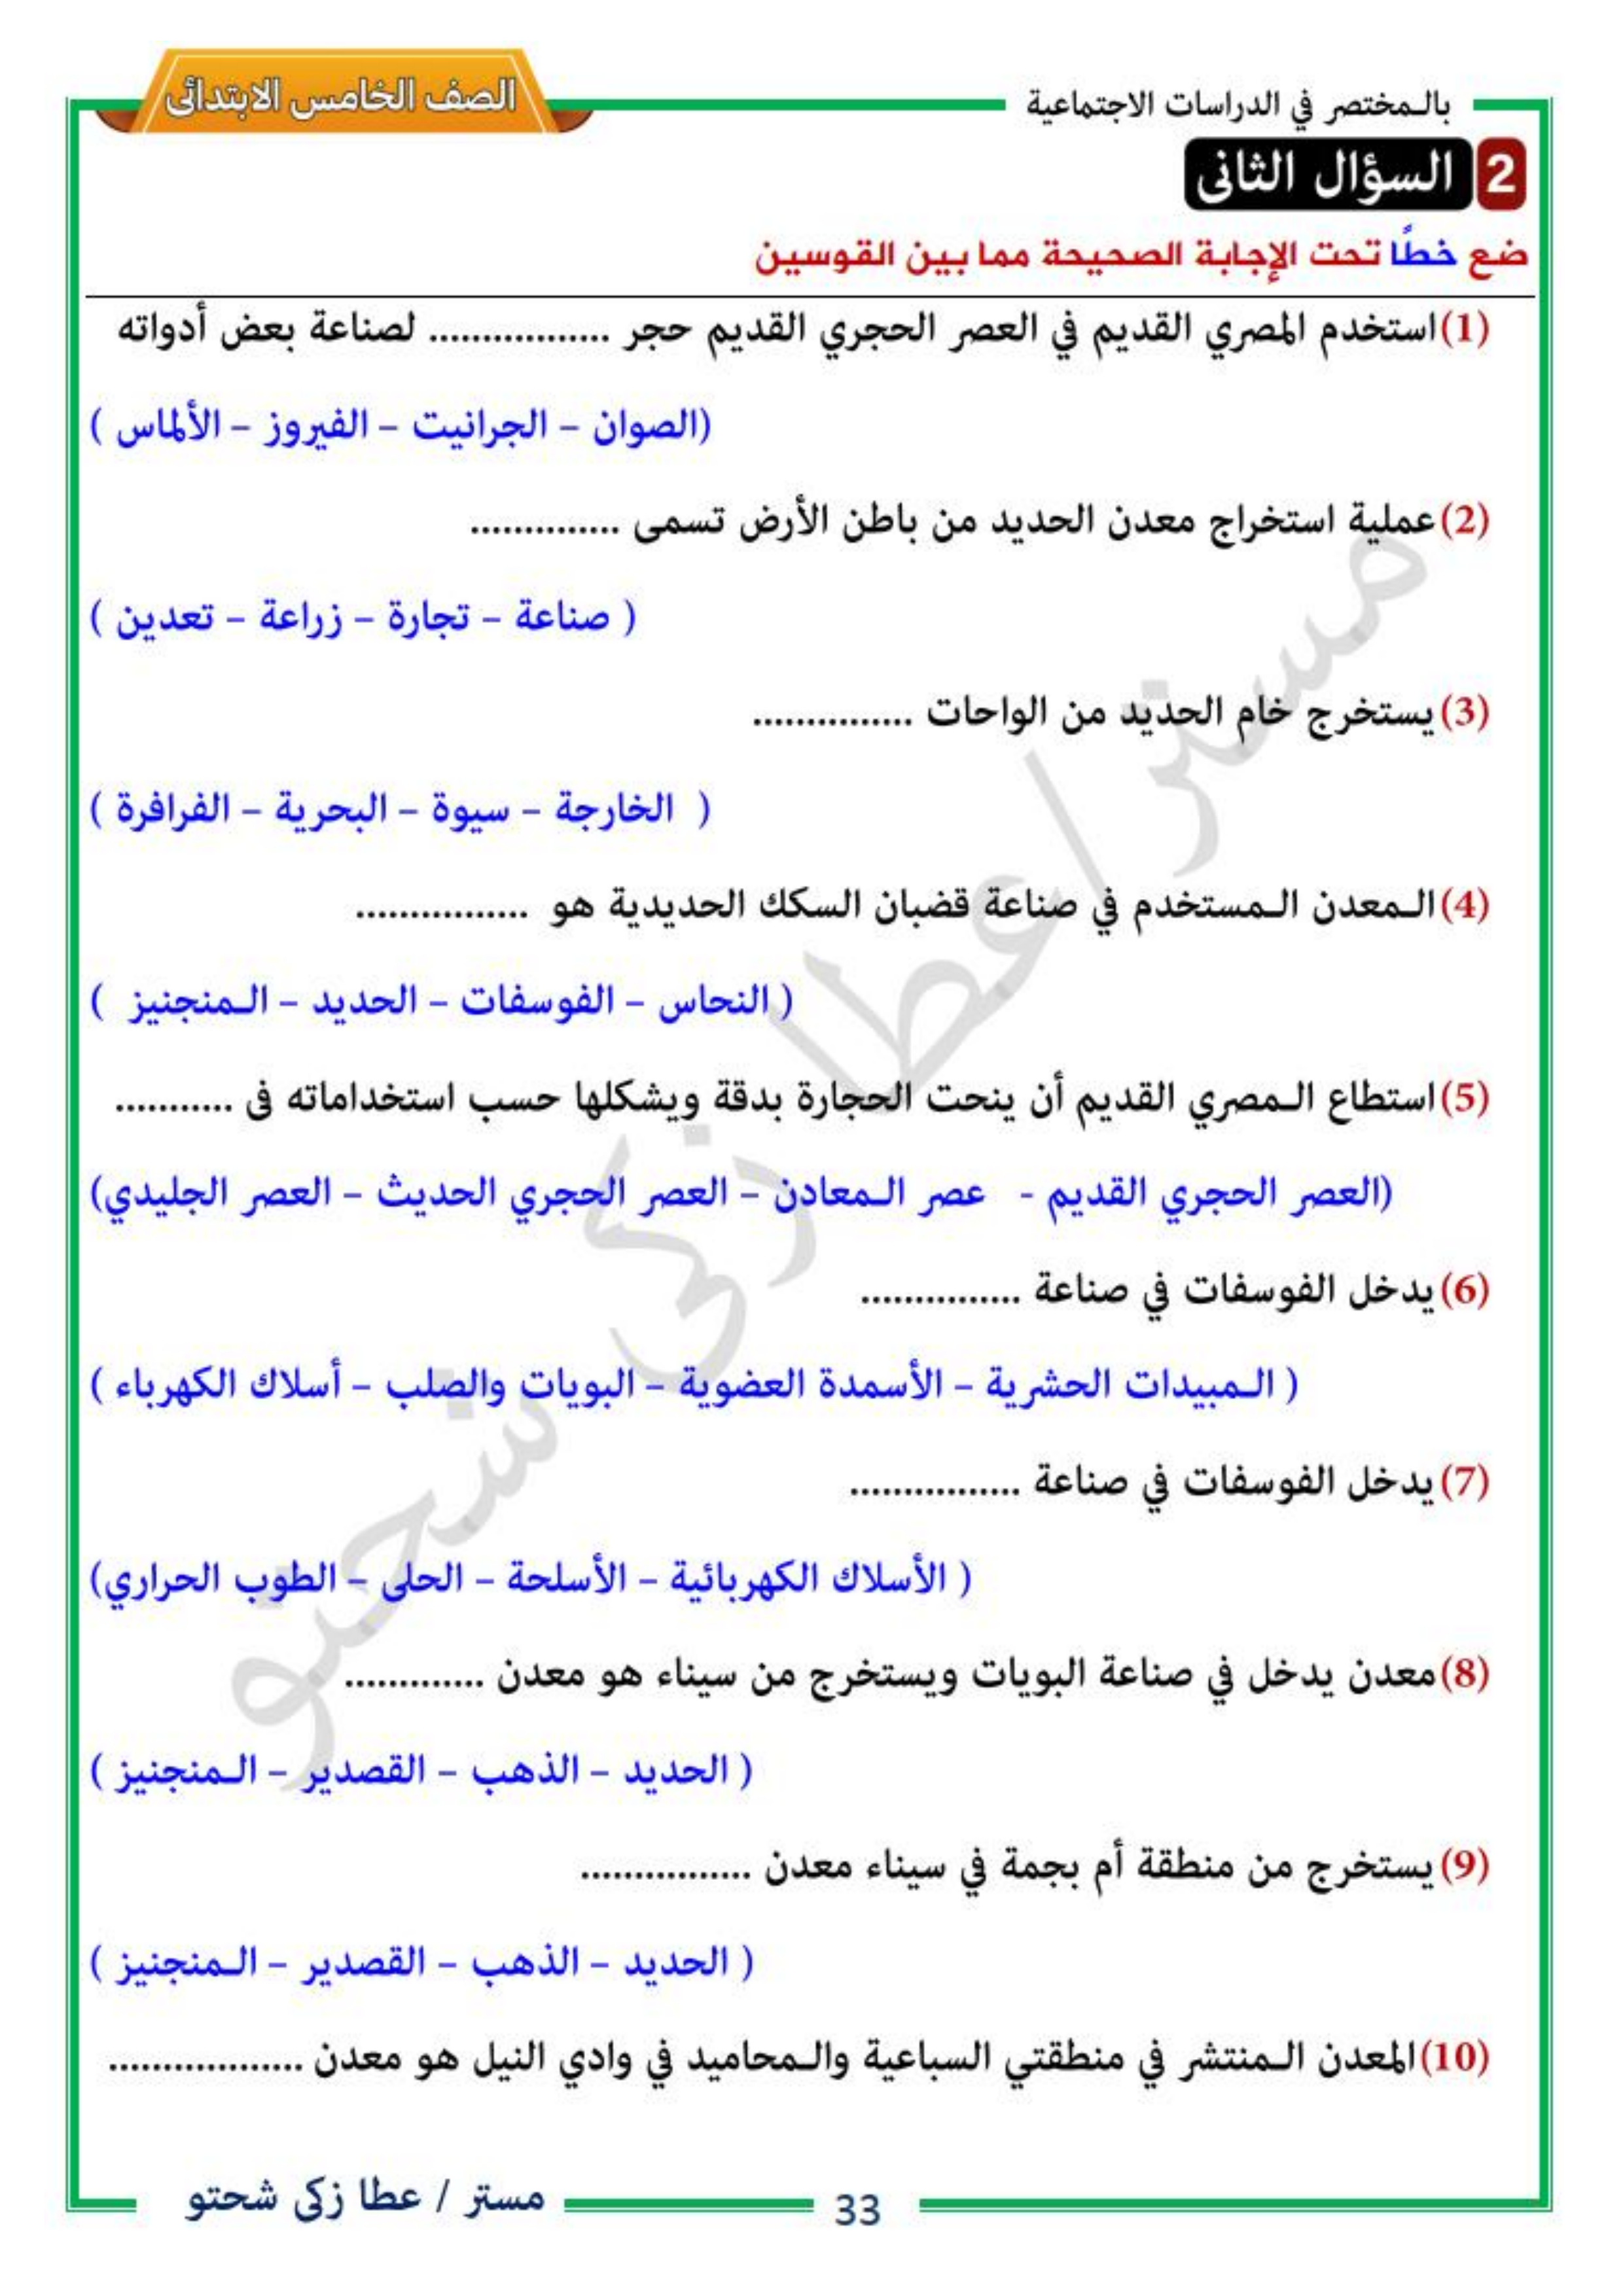 بالـمختصر في الدراسات الاجتماعية
الصف الخامس الابتدائى
2 السؤال الثانى
ضع خطًا تحت الإجابة الصحيحة مما بين القوسين
(1) استخدم المصري القديم في العصر الحجري القديم حجر ................. لصناعة بعض أدواته
(الصوان – الجرانيت – الفيروز – الألماس )
(2) عملية استخراج معدن الحديد من باطن الأرض تسمى ..............
( صناعة – تجارة – زراعة – تعدين )
(3) يستخرج خام الحديد من الواحات ...............
( الخارجة – سيوة – البحرية – الفرافرة )
(4) الـمعدن الـمستخدم في صناعة قضبان السكك الحديدية هو ................
( النحاس – الفوسفات – الحديد – الـمنجنيز )
(5) استطاع الـمصري القديم أن ينحت الحجارة بدقة ويشكلها حسب استخداماته فى ...........
(العصر الحجري القديم - عصر الـمعادن – العصر الحجري الحديث – العصر الجليدي)
(6) يدخل الفوسفات في صناعة ...............
( الـمبيدات الحشرية – الأسمدة العضوية – البويات والصلب – أسلاك الكهرباء )
(7) يدخل الفوسفات في صناعة ................
( الأسلاك الكهربائية – الأسلحة – الحلى – الطوب الحراري)
(8) معدن يدخل في صناعة البويات ويستخرج من سيناء هو معدن .............
( الحديد – الذهب – القصدير – الـمنجنيز )
(9) يستخرج من منطقة أم بجمة في سيناء معدن ................
( الحديد – الذهب – القصدير – الـمنجنيز )
(10) المعدن الـمنتشر في منطقتي السباعية والـمحاميد في وادي النيل هو معدن ..................
مستر / عطا زكى شحتو
33
مستر / عطا زكى شحتو